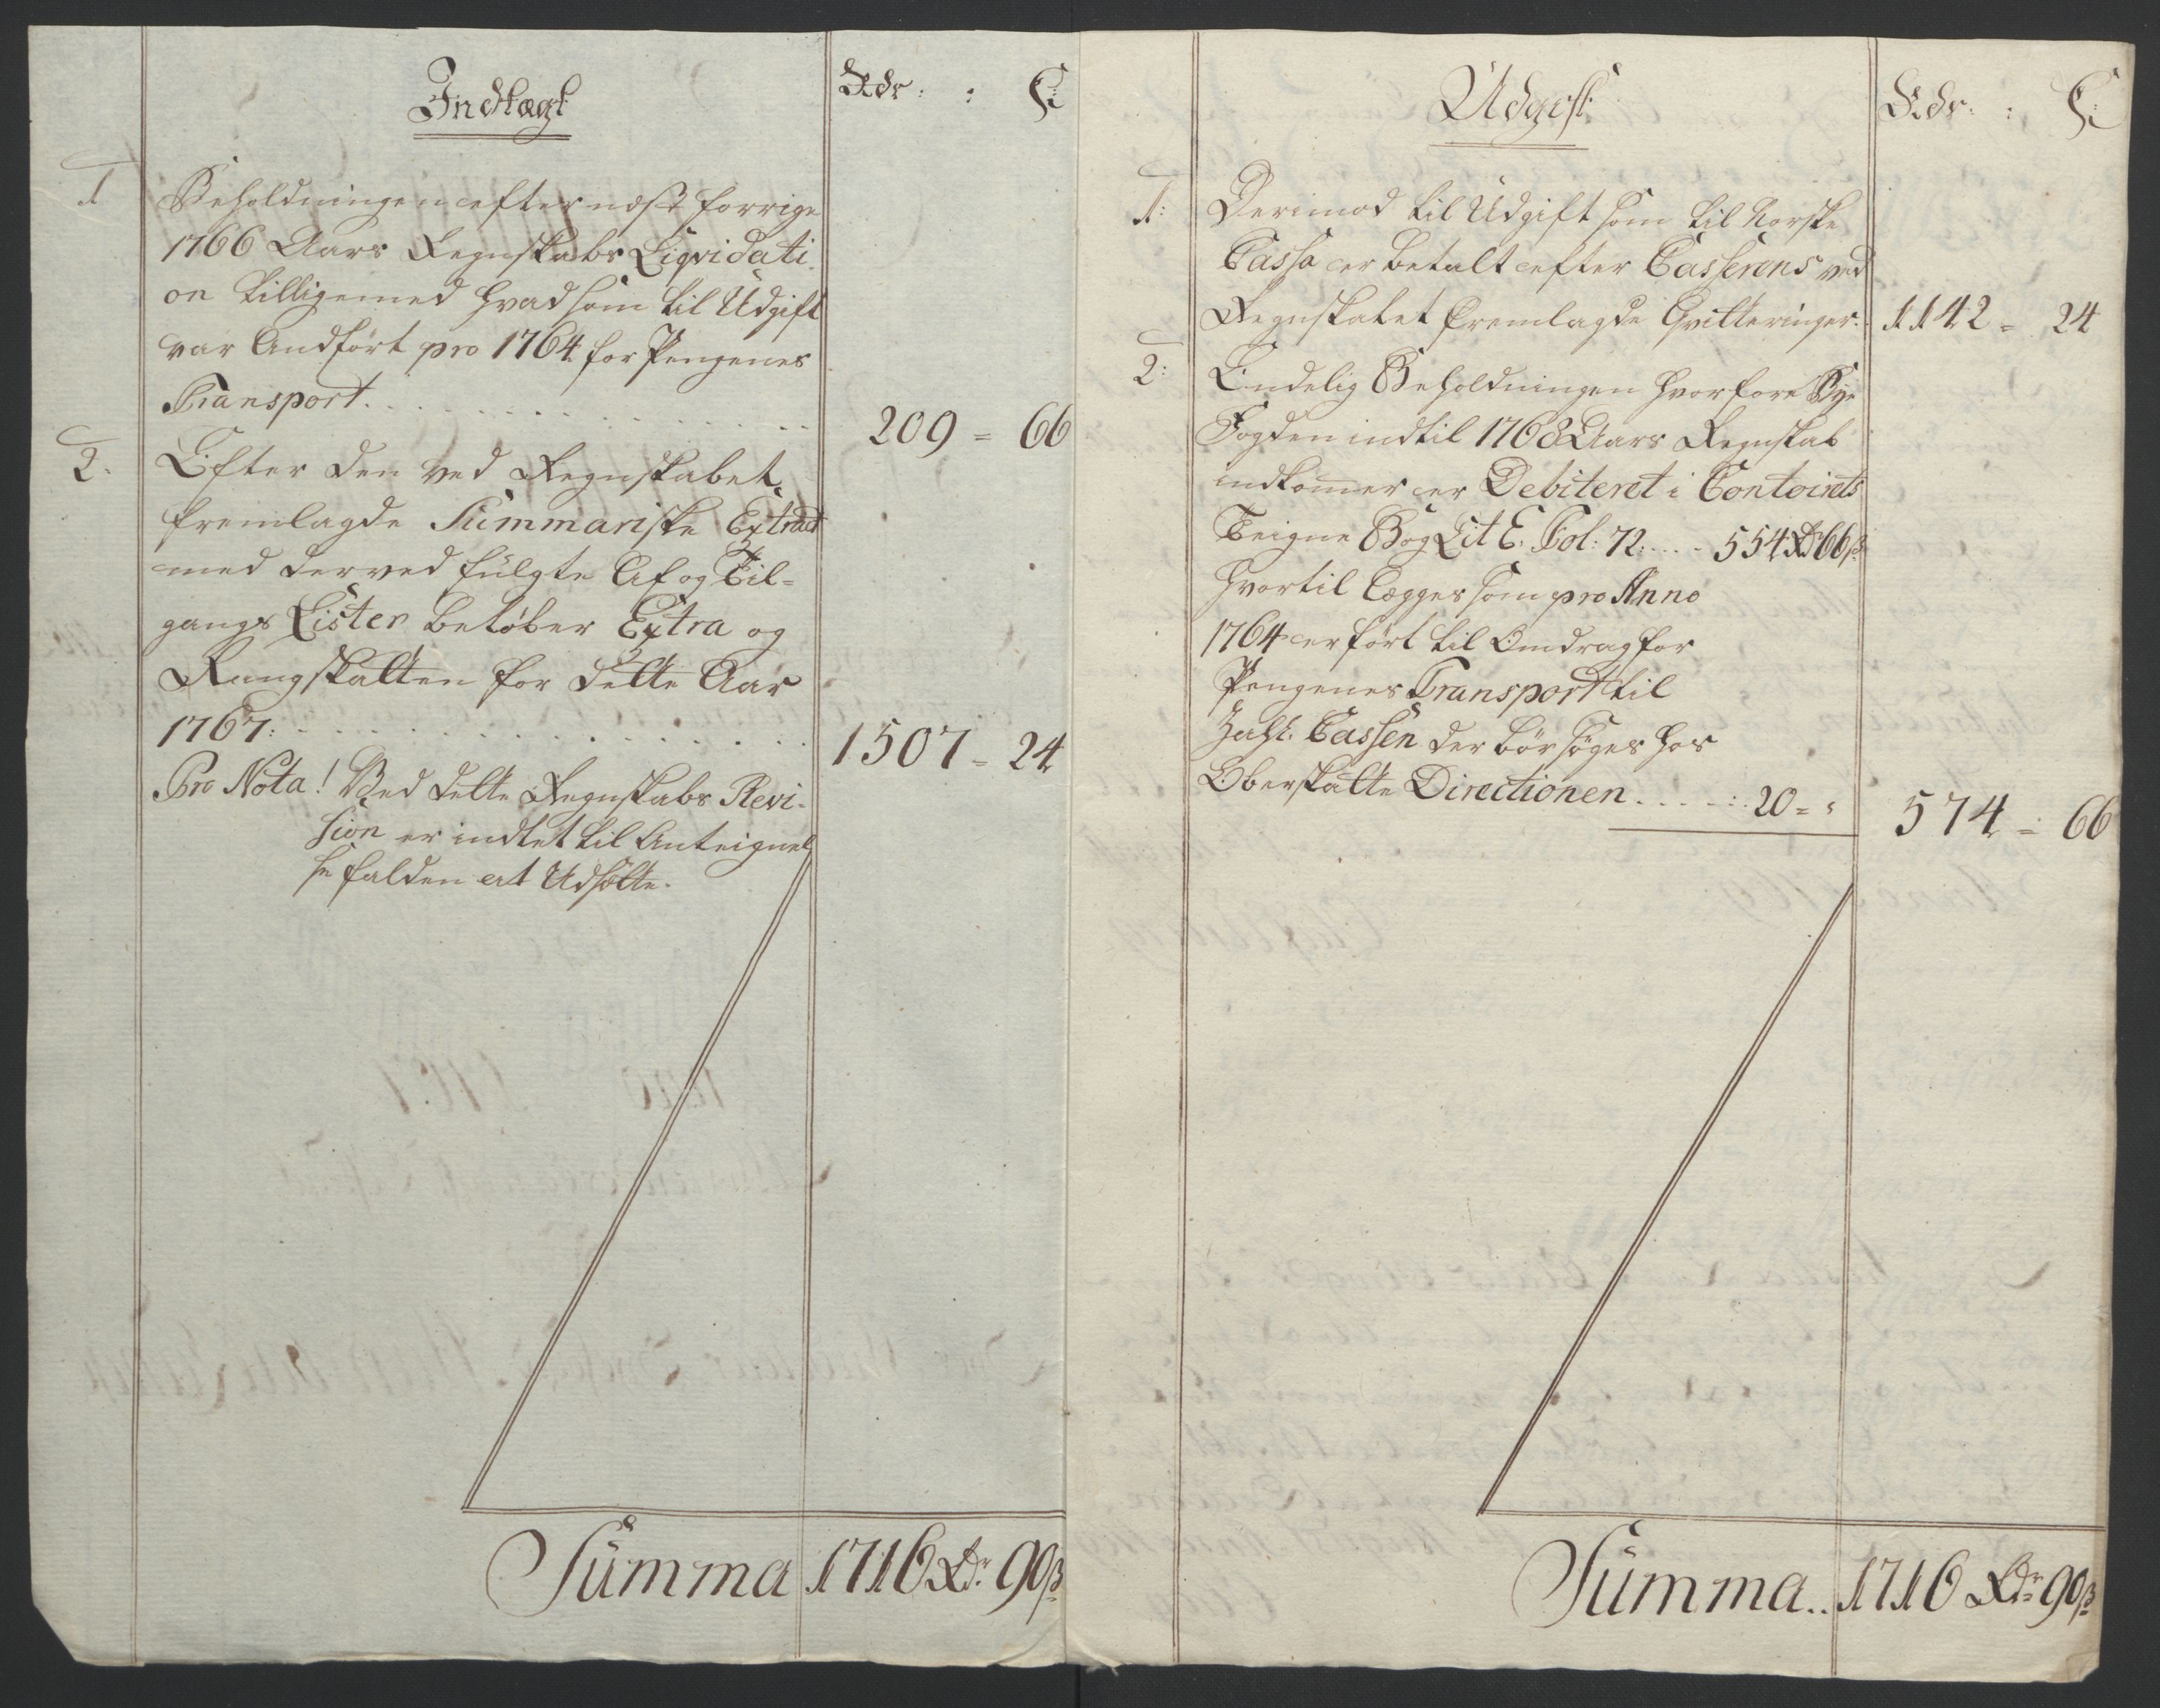 Indtægt
Rdr: : ß:
1 Beholdningen efter næst forrige
1766 Aars Regnskabs Liqvidati-
on tilligemed hvad som til Udgift
var Andført pro 1764 for Pengenes
Transport. . . . 209 = 66
2. Efter den ved Regnskabet
fremlagde Summariske Extract
med derved fulgte Af og Til-
gangs Lister beløber Extra og
Rangskatten for dette Aar
1767: . . . 1507 = 24
Pro Nota! Ved dette Regnskabs Revi-
sion er indtet til Anteignel
se falden at Udsætte.
Summa 1716 Rdr. 90 ß
Udgift
Rdr: : ß:
1: Derimod til Udgift som til Norske
Cassa er betalt efter Casserens ved
Regnskabet fremlagde Qvitteringer. 1142 = 24
2: Endelig Beholdningen hvorfore Bye
Fogden indtil 1768 Aars Regnskab
indkommer er Debiteret i Contoirets
Teigne Bog Lit E. Fol: 72. . . . 554 Rd 66 ß
hvortil Lægges som pro Anno
1764 er ført til Omdrag for
Pengenes Transport til
Zahl. Cassen der bør søges hos
Oberskatte Directionen . . . . 20 = " 574 = 66
Summa . . 1716 Rdr 90 ß